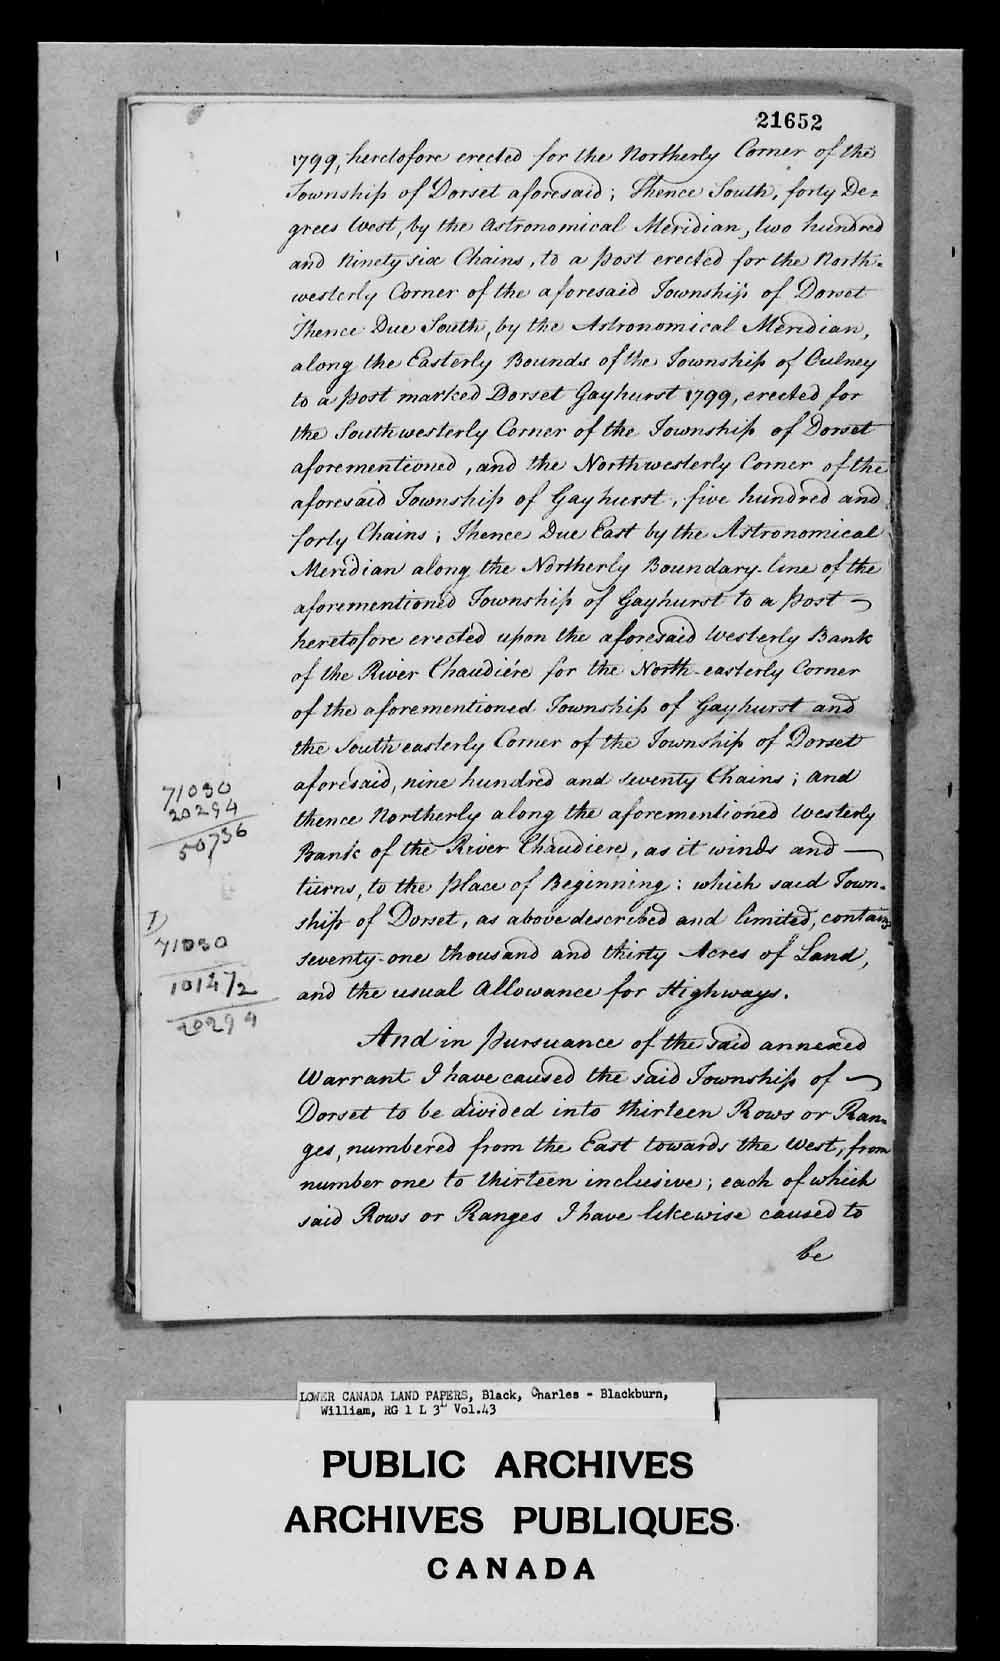 21652
1799, heretofore erected for the Northerly Corner of the
Township of Dorset aforesaid; Thence South, forty De=
grees West, by the Astronomical Meridian, two hundred
and Ninety six Chains, to a post erected for the North=
westerly Corner of the aforesaid Township of Dorset
Thence Due South, by the Astronomical Meridian,
along the Easterly Bounds of the Township of
to a post marked Dorset Gayhurst 1799, erected for
the Southwesterly Corner of the Township of Dorset
aforementioned, and the Northwesterly Corner of the
aforesaid Township of Gayhurst, five hundred and
forty Chains; Thence Due East by the Astronomical
Meridian along the Northerly Boundary-line of the
aforementioned Township of Gayhurst to a post
heretofore erected upon the aforesaid Westerly Bank
of the River Chaudiére for the North-easterly Corner
of the aforementioned Township of Gayhurst and
the Southeasterly Corner of the Township of Dorset
aforesaid, nine hundred and seventy Chains; and
thence Northerly along the aforementioned Westerly
Bank of the River Chaudiere, as it winds and
turns, to the place of Beginning: which said Town=
ship of Dorset, as above described and limited, contains
seventy-one thousand and thirty Acres of Land,
and the usual Allowance for Highways.
And in pursuance of the said annexed
Warrant I have caused the said Township of
Dorset to be divided into thirteen Rows or Ran=
ges, numbered from the East towards the West, from
number one to thirteen inclusive; each of which
said Rows or Ranges I have likewise caused to
be
71030
20294
50736
71030
20294
LOWER CANADA LAND PAPERS, Black, Charles - Blackburn,
William, RG 1 L 3L Vol.43
PUBLIC ARCHIVES
ARCHIVES PUBLIQUES
CANADA